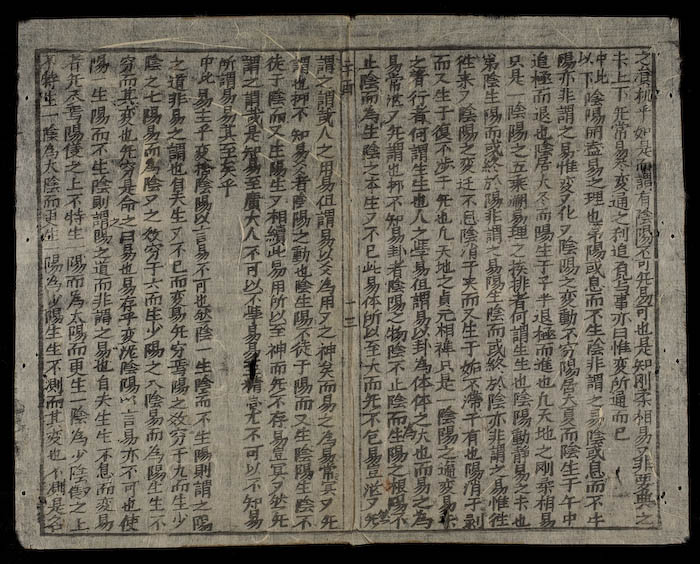 如是而謂有陰陽不可无易可也是知剛柔相易又非要典之
上下无常易 變通之利 事亦曰惟变所通而已
以下陰陽 易之理也 陽或息而不生陰非謂之易陰或息而不生
陽亦非謂之易惟变又化又陰陽之变動不穷陽居大夏而陰生于午中
追極而退也陰居大冬而陽生于子半退極而進也凡天地之剛柔相易
只是一陰陽之互乘 易理之 排者何謂生生也陰陽動静易之 也
第陰生陽而或終於陽非謂之易陽生陰而或終於陰亦非謂之易惟徃
徃来又陰陽之变迁不已陰消于夬而又生于姤不滞于有也陽消于剥
而又生于復不涉于无也凡天地之貞元相 只是一陰陽之通变易
之 行者何謂生生也人之學易但謂易以卦為体体之大也而易之為
易常 又无謂也抑不知易卦者陰陽之物陰不止陰而生陽之根陽不
止陰而為生陰之本生又不已此易体所以至大而无不包易豈 又无
謂之謂或人之用易但謂易以爻為用又之神矣而易之為易常冥又无
謂也抑不知易爻者陰陽之動也陰生陽不徒于陽而又生陰陽生陰不
徒于陰而又生陽生又相續此易用所以至神而无不存易豈冥又 无
謂之謂 是知易至廣大人不可以不學易易 精 尤不可以不知易
所謂易易其至矣乎
中此易主乎变 陰陽以言易不可也 陰一生陰而不生陽則謂之陽
之道非易之謂也自夫生又不已而变易无穷焉陽之 穷于九而生少
陰之七陽易而為陰又之 穷于六而生少陽之八陰易而為陽生生不
穷而其变也无穷是命之曰易也易存乎变 陰陽以言易亦不可也使
陽一生陽而不生陰則謂陽之道而非謂之易也自夫生生不息而变易
者无 焉陽儀之上不特生一陽而為太陽而更生一陰為少陰 之上
不特生一陰為太陰而更生一陽為少陽生生不測而其变也不測是名